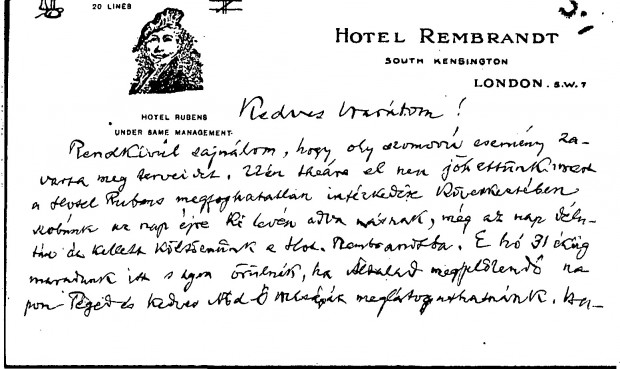 20 LINES
HOTEL REMBRANDT
SOUTH KENSINGTON
LONDON. S.W.7
HOTEL RUBENS
UNDER SAME MANAGEMENT.
Kedves Barátom!
Rendkívül sajnálom, hogy oly szomorú esemény za-
varta meg terveidet. 22én theára el nem jöhettünk mert
a Hotel Rubens megfoghatatlan intézkedése következtében
szobánk az nap éjre ki lévén adva másnak, még az nap délu-
tán át kellett költöznünk a Hot. Rembrandtba. E hó 31 éig
maradunk itt s igen örülnénk, ha Általad megjelölendő na
pon Téged és kedves Nőd Ő Méltóságát meglátogathatnánk.